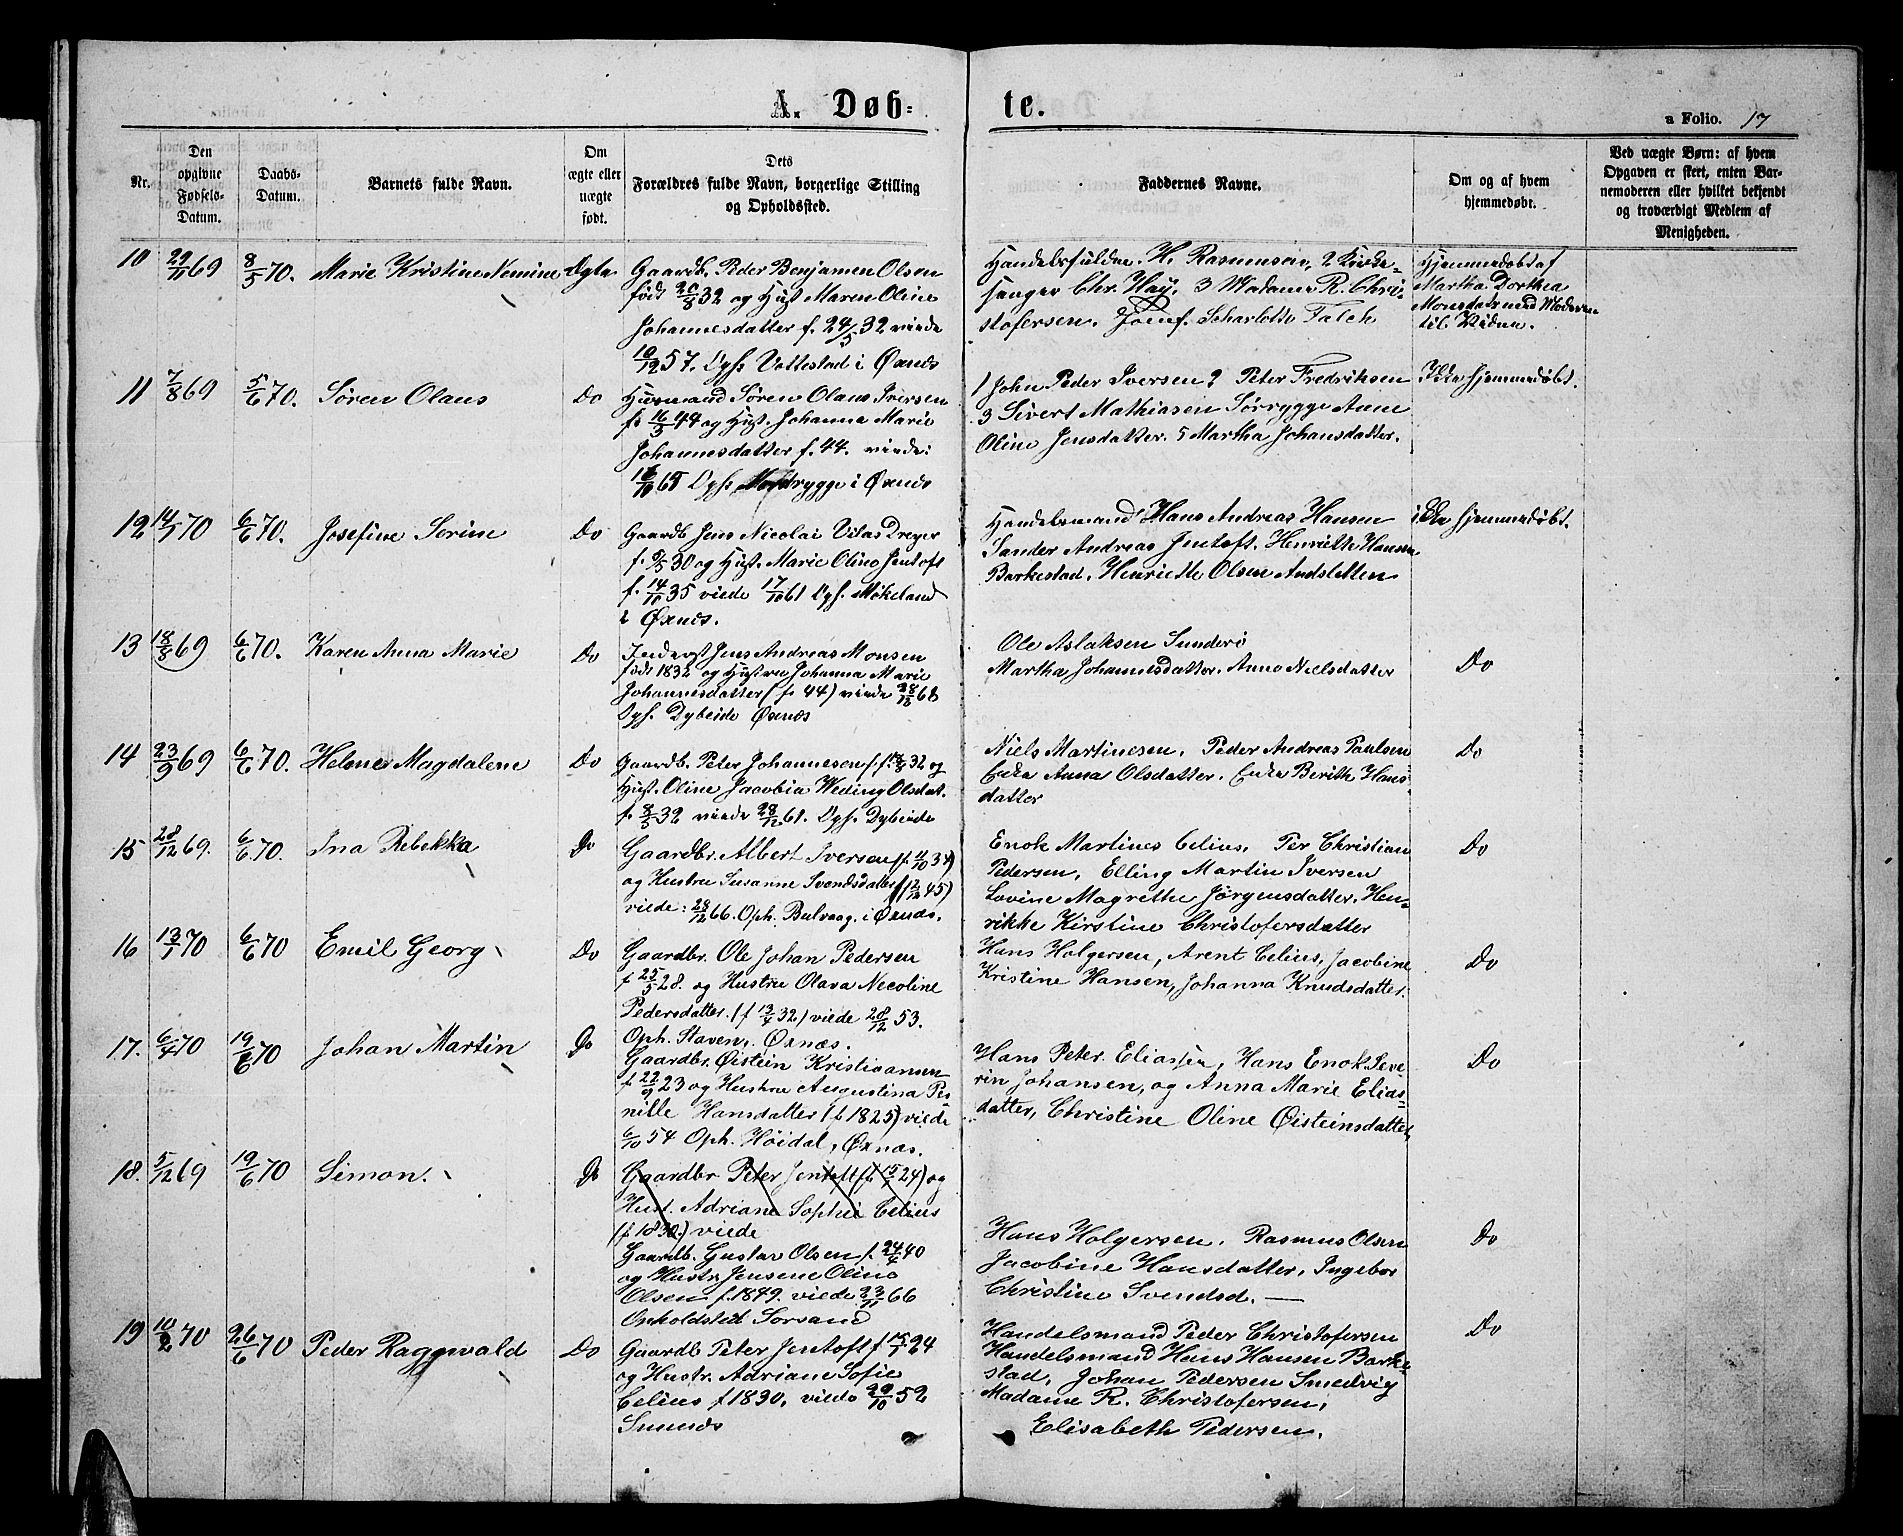 A. Døb-te.
a Folio. 17
Nr.
Den opgivne Fødsels-Datum.
Daabs-Datum.
Barnets fulde Navn.
Om ægte eller uægte født.
Dets Forældres fulde Navn, borgerlige Stilling og Opholdssted.
Faddernes Navne.
Om og af hvem hjemmedøbt.
Ved uægte Børn: af hvem Opgaven er skeet, enten Barnemoderen eller hvilket bekjendt og troværdigt Medlem af Menigheden.
10 29/11 69 8/5 70. Marie Kristine Nemine Ægte
Gaardb. Peder Benjamen Olsen
født 20/8 32 og Hust Maren Oline
Johannesdatter f. 24/5 32 viede
10/12 57. Oph. Vottestad i Øxnæs
H. Rasmussen, 2 Kirke-
sanger Chr. Høy. 3 Madame R. Chri-
stofersen. Jomf. Scharlotte Falch
Hjemmedøbt af
Martha Dorthea
Monsdatter med Moderen
til Viden.
11 7/8 69 5/6 70. Søren Olaus Do
Husmand Søren Olaus Iversen
f. 16/3 44 og Hust. Johanna Marie
Johannesdatter f. 44. viede:
65 Oph. i Øxnæs
1 John Peder Iversen 2 Peter Fredriksen
3 Sivert Mathiasen Sørrygge Anne
Oline Jensdatter. 5 Martha Johansdatter.
Ikke hjemmedøbt.
12 14/1 70 6/6 70. Josefine Sorine Do
Gaardb Jens Nicolai Vitas Dreyer
f. 9/5 30 og Hust. Marie Oline Jentoft
f. 14/11 35 viede 17/10 61 Oph. Møkeland
i Øxnæs.
Handelsmand Hans Andreas Hansen
Sander Andreas Jentoft. Henriette Hansen
Barkestad. Henriette Olsen Andsletten
ikke hjemmedøbt.
13 18/8 69 6/6 70. Karen Anna Marie Do
Inderst Jens Andreas Monsen
født 1832 og Hustru Johanna Marie
Johannesdatter (f. 44) viede 28/12 68
Oph. Dybeide Øxnæs
Ole Aslaksen Sunderø
Martha Johannesdatter. Anne Nielsdatter
Do
14 23/9 69 6/6 70. Helene Magdalene Do
Gaardb. Peter Johannesen f. 32 og
Hust. Oline Jacobia Weding Olsdat.
f. 8/5 32 viede 28/12 61. Oph. Dybeide
Niels Martinesen. Peder Andreas Paulsen
Enke Anna Olsdatter. Enke Berith Hans-
datter
Do
15 28/12 69. 6/6 70. Ina Rebekka Do
Gaardbr. Albert Iversen (f. 11/10 34)
og Hustru Susanne Svendsdatter (f 12/12 45)
viede: 28/12 66. Oph. Bulvaag. i Øxnæs.
Enok Martines Celius. Per Christian
Pedersen, Elling Martin Iversen
Lovine Magrethe Jørgensdatter. Hen-
rikke Kirstine Christofersdatter
Do
16 13/1 70 6/6 70 Emil Georg Do
Gaardbr. Ole Johan Pedersen
f 25/5 28. og Hustru Olava Necoline
Pedersdatter. (f 13/4 32) viede 28/12 53.
Oph. Staven, Øxnæs.
Hans Holgersen, Arent Celius, Jacobine
Kristine Hansen, Johanna Knudsdatter.
Do
17. 6/4 70 19/6 70 Johan Martin Do
Gaardbr. Øistein Kristiansen
f 22/9 23 og Hustru Augustina Per-
nille Hansdatter (f. 1825) viede
6/10 54 Oph. Høidal, Øxnæs.
Hans Peter Eliassen, Hans Enok Seve-
rin Johansen, og Anna Marie Elias-
datter, Christine Oline Øisteinsdatter,
Do
18. 5/12 69 19/6 70 Simon. Do
Gaardbr Peter Jentoft (f. 15/1 24) og
Hust. Adriane Sophie Celius
(f 1830.) viede
Gaardb. Gustav Olsen f. 24/4 40
og Hustr. Jensene Oline
Olsen f. 1849. viede 23/11 66
Opholdsted Sorsand
Hans Holgersen. Rasmus Olsen
Jacobine Hansdatter, Ingebor
Christine Svendsd. —
Do
19 10/2 70 26/6 70 Peder Raggwald Do
Gaardb Peter Jentoft f 15/1 24
og Hustr. Adriane Sofie
Celius f 1830, viede 20/10 52
Smines
Handelsmand Peder Christofersen
Handelsmand Hans Hansen Barke-
stad, Johan Pedersen Smedvig
Madame R. Christofersen,
Elisabeth Pedersen.
Do